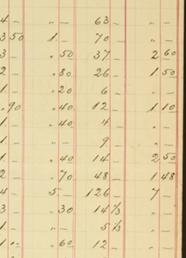 4 – 63 –
3 50 1 – 70 –
3 – .50 37 – 2 60
2 – .80 26 – 1 50
1 – .20 6 –
.90 .40 12 – 1 10
1 – .40 4 –
1 – 9 –
1 – .40 14 – 2 50
2 – .70 48 – 1 48
4 – 5 – 126 – 7 –
3 – .30 14 ⅓
1 – 5 ⅓ –
1 .60 12 –